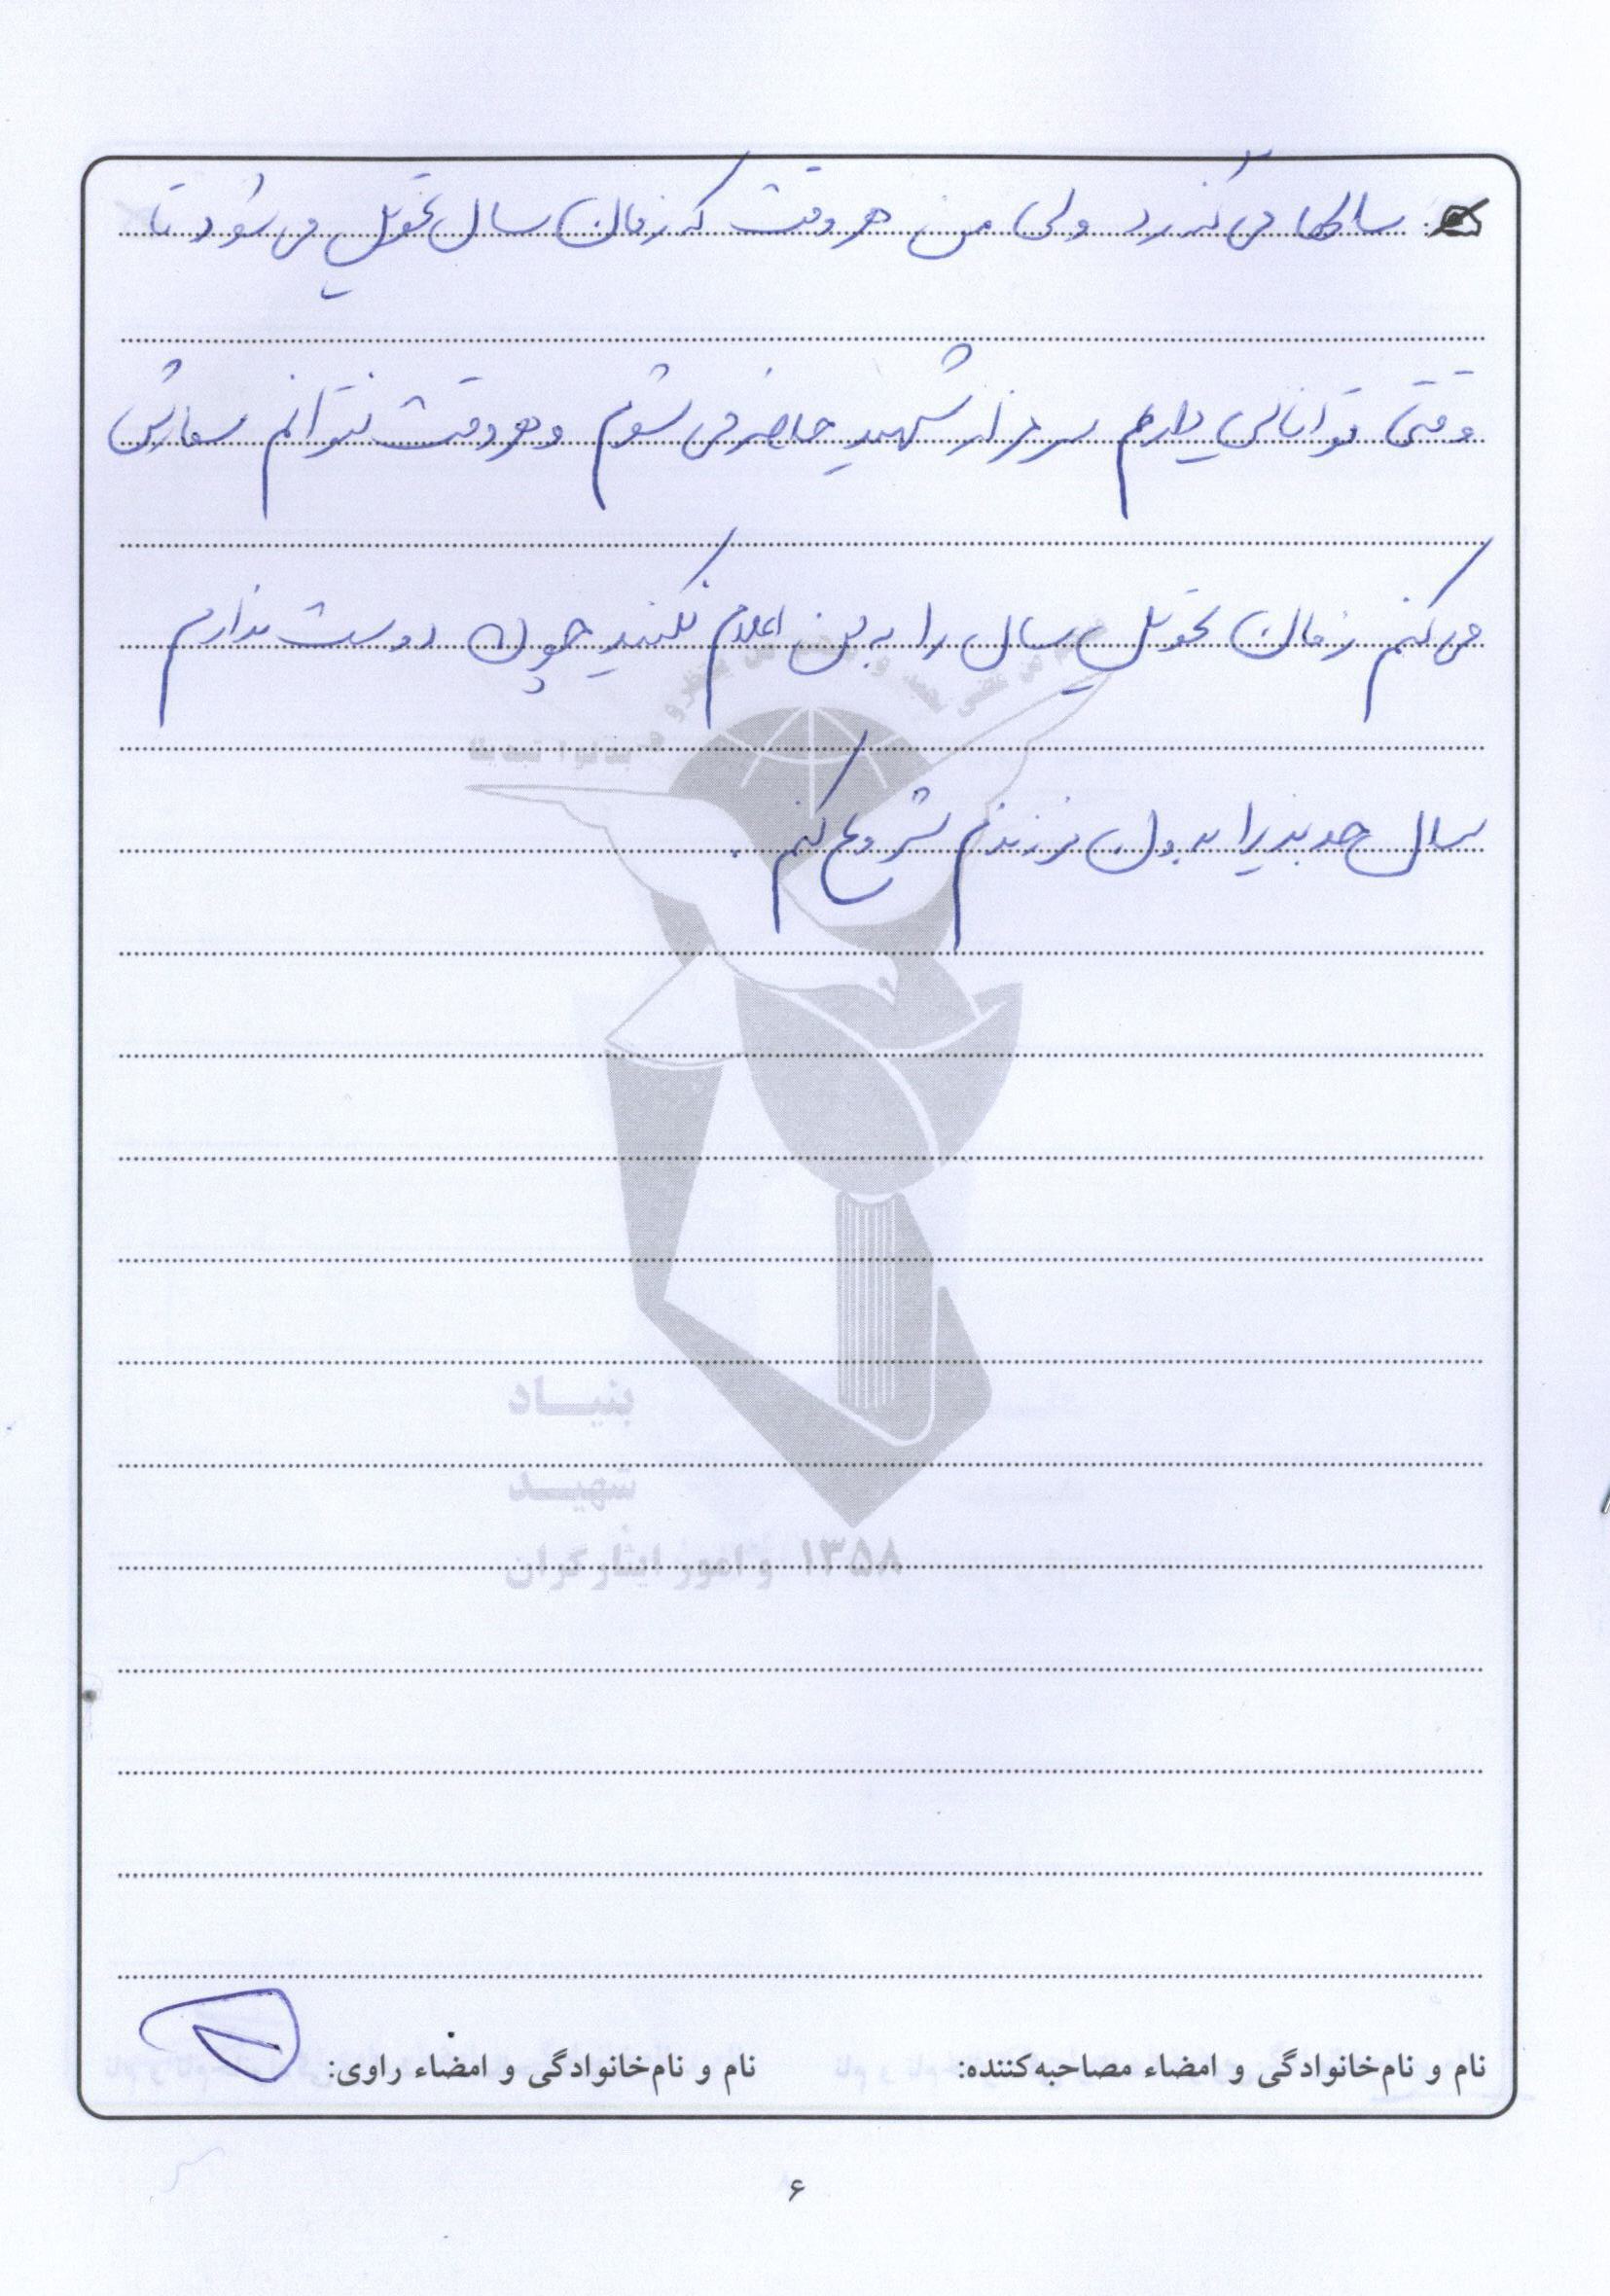 سالها می گذرد ولی من هر وقت که زمان سال تحویل می شود تا
وقتی توانایی دارم سر مزار شهید حاضر می شوم و هر وقت نتوانم سفارش
می کنم زمان تحویل سال را به من اعلام نکنید چون دوست ندارم
سال جدید را بدون فرزندم شروع کنم .
بنیاد
شهید
و امور ایثارگران ۱۳۵۸
نام و نام‌خانوادگی و امضاء مصاحبه‌کننده: نام و نام‌خانوادگی و امضاء راوی:
۶